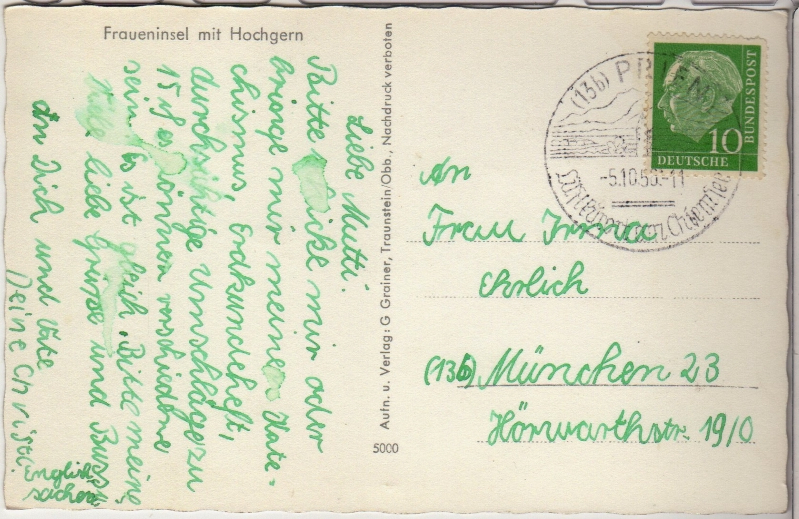 Fraueninsel mit Hochgern
Liebe Mutti.
Bitte schicke mir oder
bringe mir meinen Kate-
chismus, Erdkundeheft,
durchsichtige Umschläge zu
15 es können verschiedene
sein. Es ist gleich. Bitte meine
Viele liebe Grüße und Bussi
an Dich und Vati
Deine Christi.
Englisch
sachen
Aufn. u. Verlag: G. Grainer, Traunstein/Obb., Nachdruck verboten
5000
(13b) PRIEN
-5.10.55.-11
Chiemsee
10
DEUTSCHE
BUNDESPOST
An
Frau Irma
Ehrlich
(13b) München 23
Hörwarthstr. 19/0